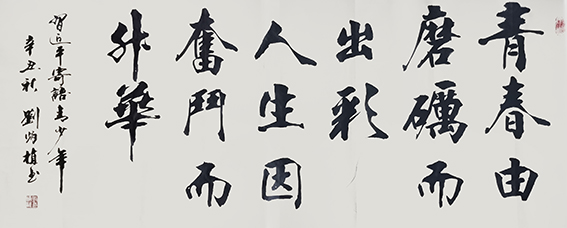 青春由
磨礪而
出彩
人生因
奮鬥而
升華
習近平寄語青少年
辛丑秋 劉炳植書